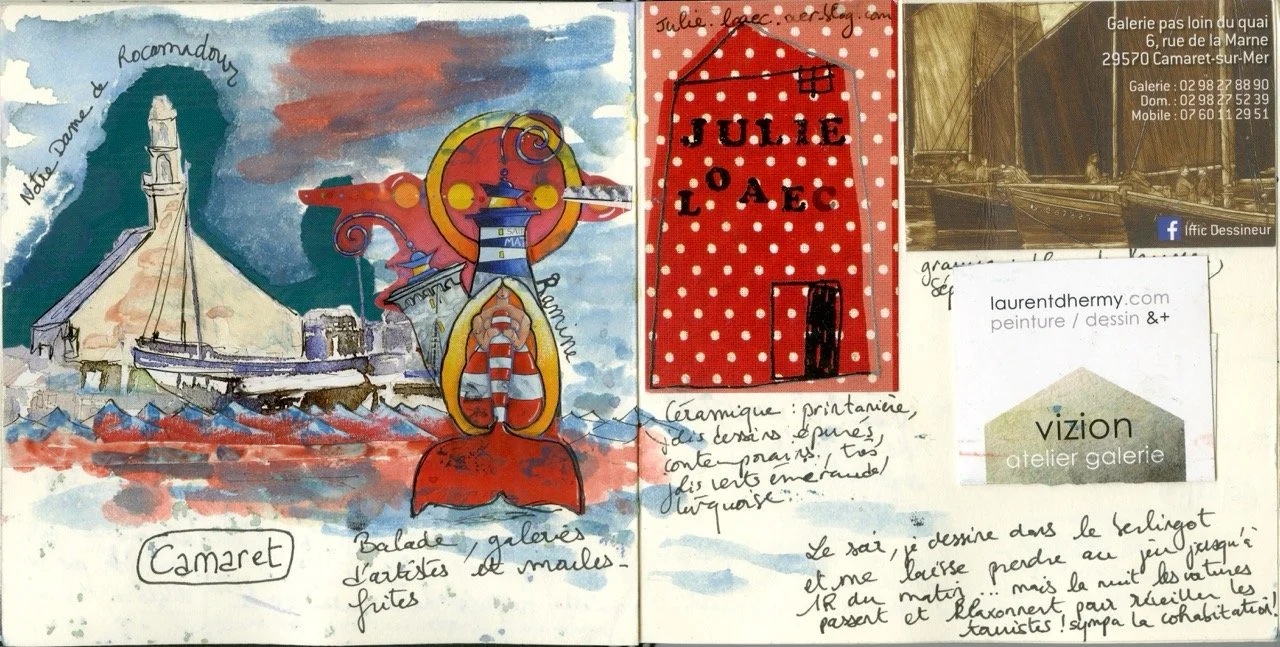 Notre Dame de Rocamadour
SAINT
MAT
Ramine
Camaret
Balade, galeries
d'artistes et moules-
frites
Julie.loaec.over-blog.com
JULIE
LOAEC
Céramique : printanière,
jolis dessins épurés,
contemporains, très
jolis verts émeraude/
turquoise.
Galerie pas loin du quai
6, rue de la Marne
29570 Camaret-sur-Mer
Galerie : 02 98 27 88 90
Dom. : 02 98 27 52 39
Mobile : 07 60 11 29 51
f Iffic Dessineur
laurentdhermy.com
peinture / dessin &+
vizion
atelier galerie
Le soir, je dessine dans le berlingot
et me laisse prendre au jeu jusqu'à
1R du matin... mais la nuit les voitures
passent et klaxonnent pour réveiller les
touristes ! sympa la cohabitation!